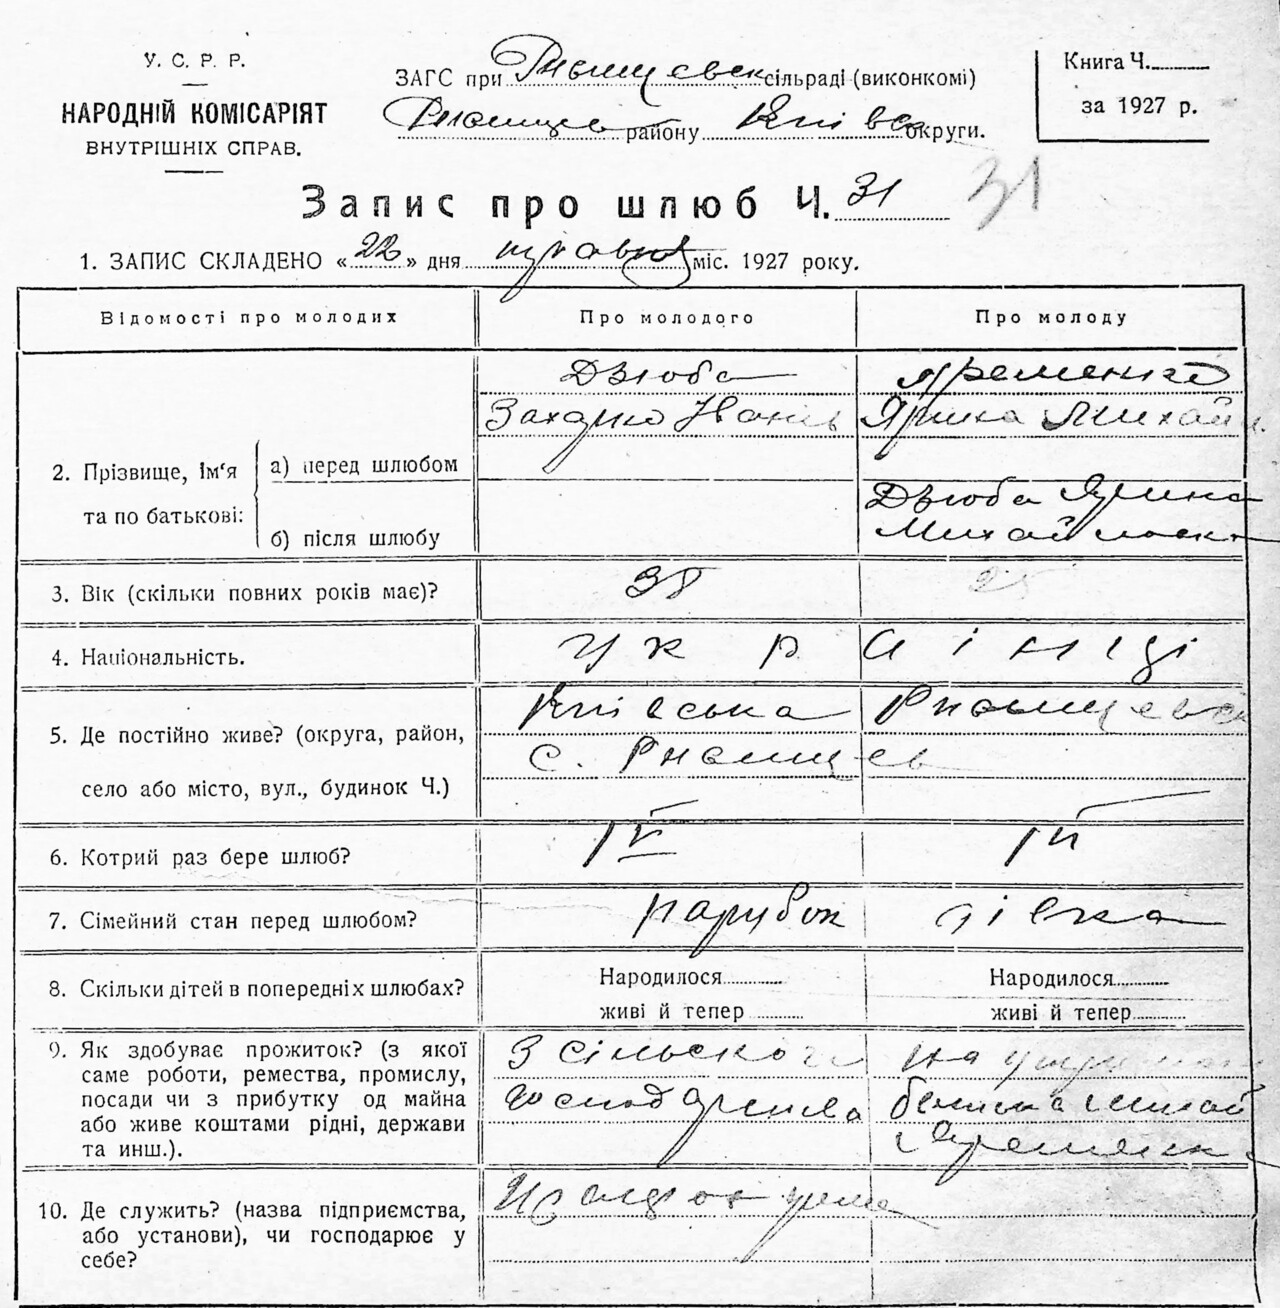 У. С. Р. Р.
НАРОДНІЙ КОМІСАРІЯТ
ВНУТРІШНІХ СПРАВ.
ЗАГС при Ржищевск сільраді (виконкомі)
Ржищев району Київс округи.
Книга Ч.
за 1927 р.
Запис про шлюб Ч. 31
31
1. ЗАПИС СКЛАДЕНО «22» дня травня міс. 1927 року.
Відомості про молодих Про молодого Про молоду
2. Прізвище, Ім'я та по батькові:
а) перед шлюбом
Дзюба Яременко
Захарко Іванів Ярина Михайл.
б) після шлюбу
Дзюба Ярина
Михайловна
3. Вік (скільки повних років має)? 25
4. Національність. Українці
5. Де постійно живе? (округа, район,
село або місто, вул., будинок Ч.)
Київська Ржищевск
с. Ржищев
6. Котрий раз бере шлюб?
7. Сімейний стан перед шлюбом? парубок дівка
8. Скільки дітей в попередніх шлюбах? Народилося Народилося
живі й тепер живі й тепер
9. Як здобуває прожиток? (з якої
саме роботи, ремества, промислу,
посади чи з прибутку од майна
або живе коштами рідні, держави
та инш.).
З сільского
господарства
на утриман
батька Михай
Яременка
10. Де служить? (назва підприємства,
або установи), чи господарює у
себе?